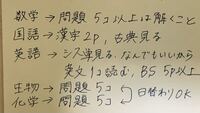 数学→問題 5コ以上は解くこと
国語→漢字2p, 古典見る
英語→シス単見る, なんでもいいから
英文1コ読む, BS 5p以上
生物→問題 5コ
化学→問題 5コ
日替わりOK